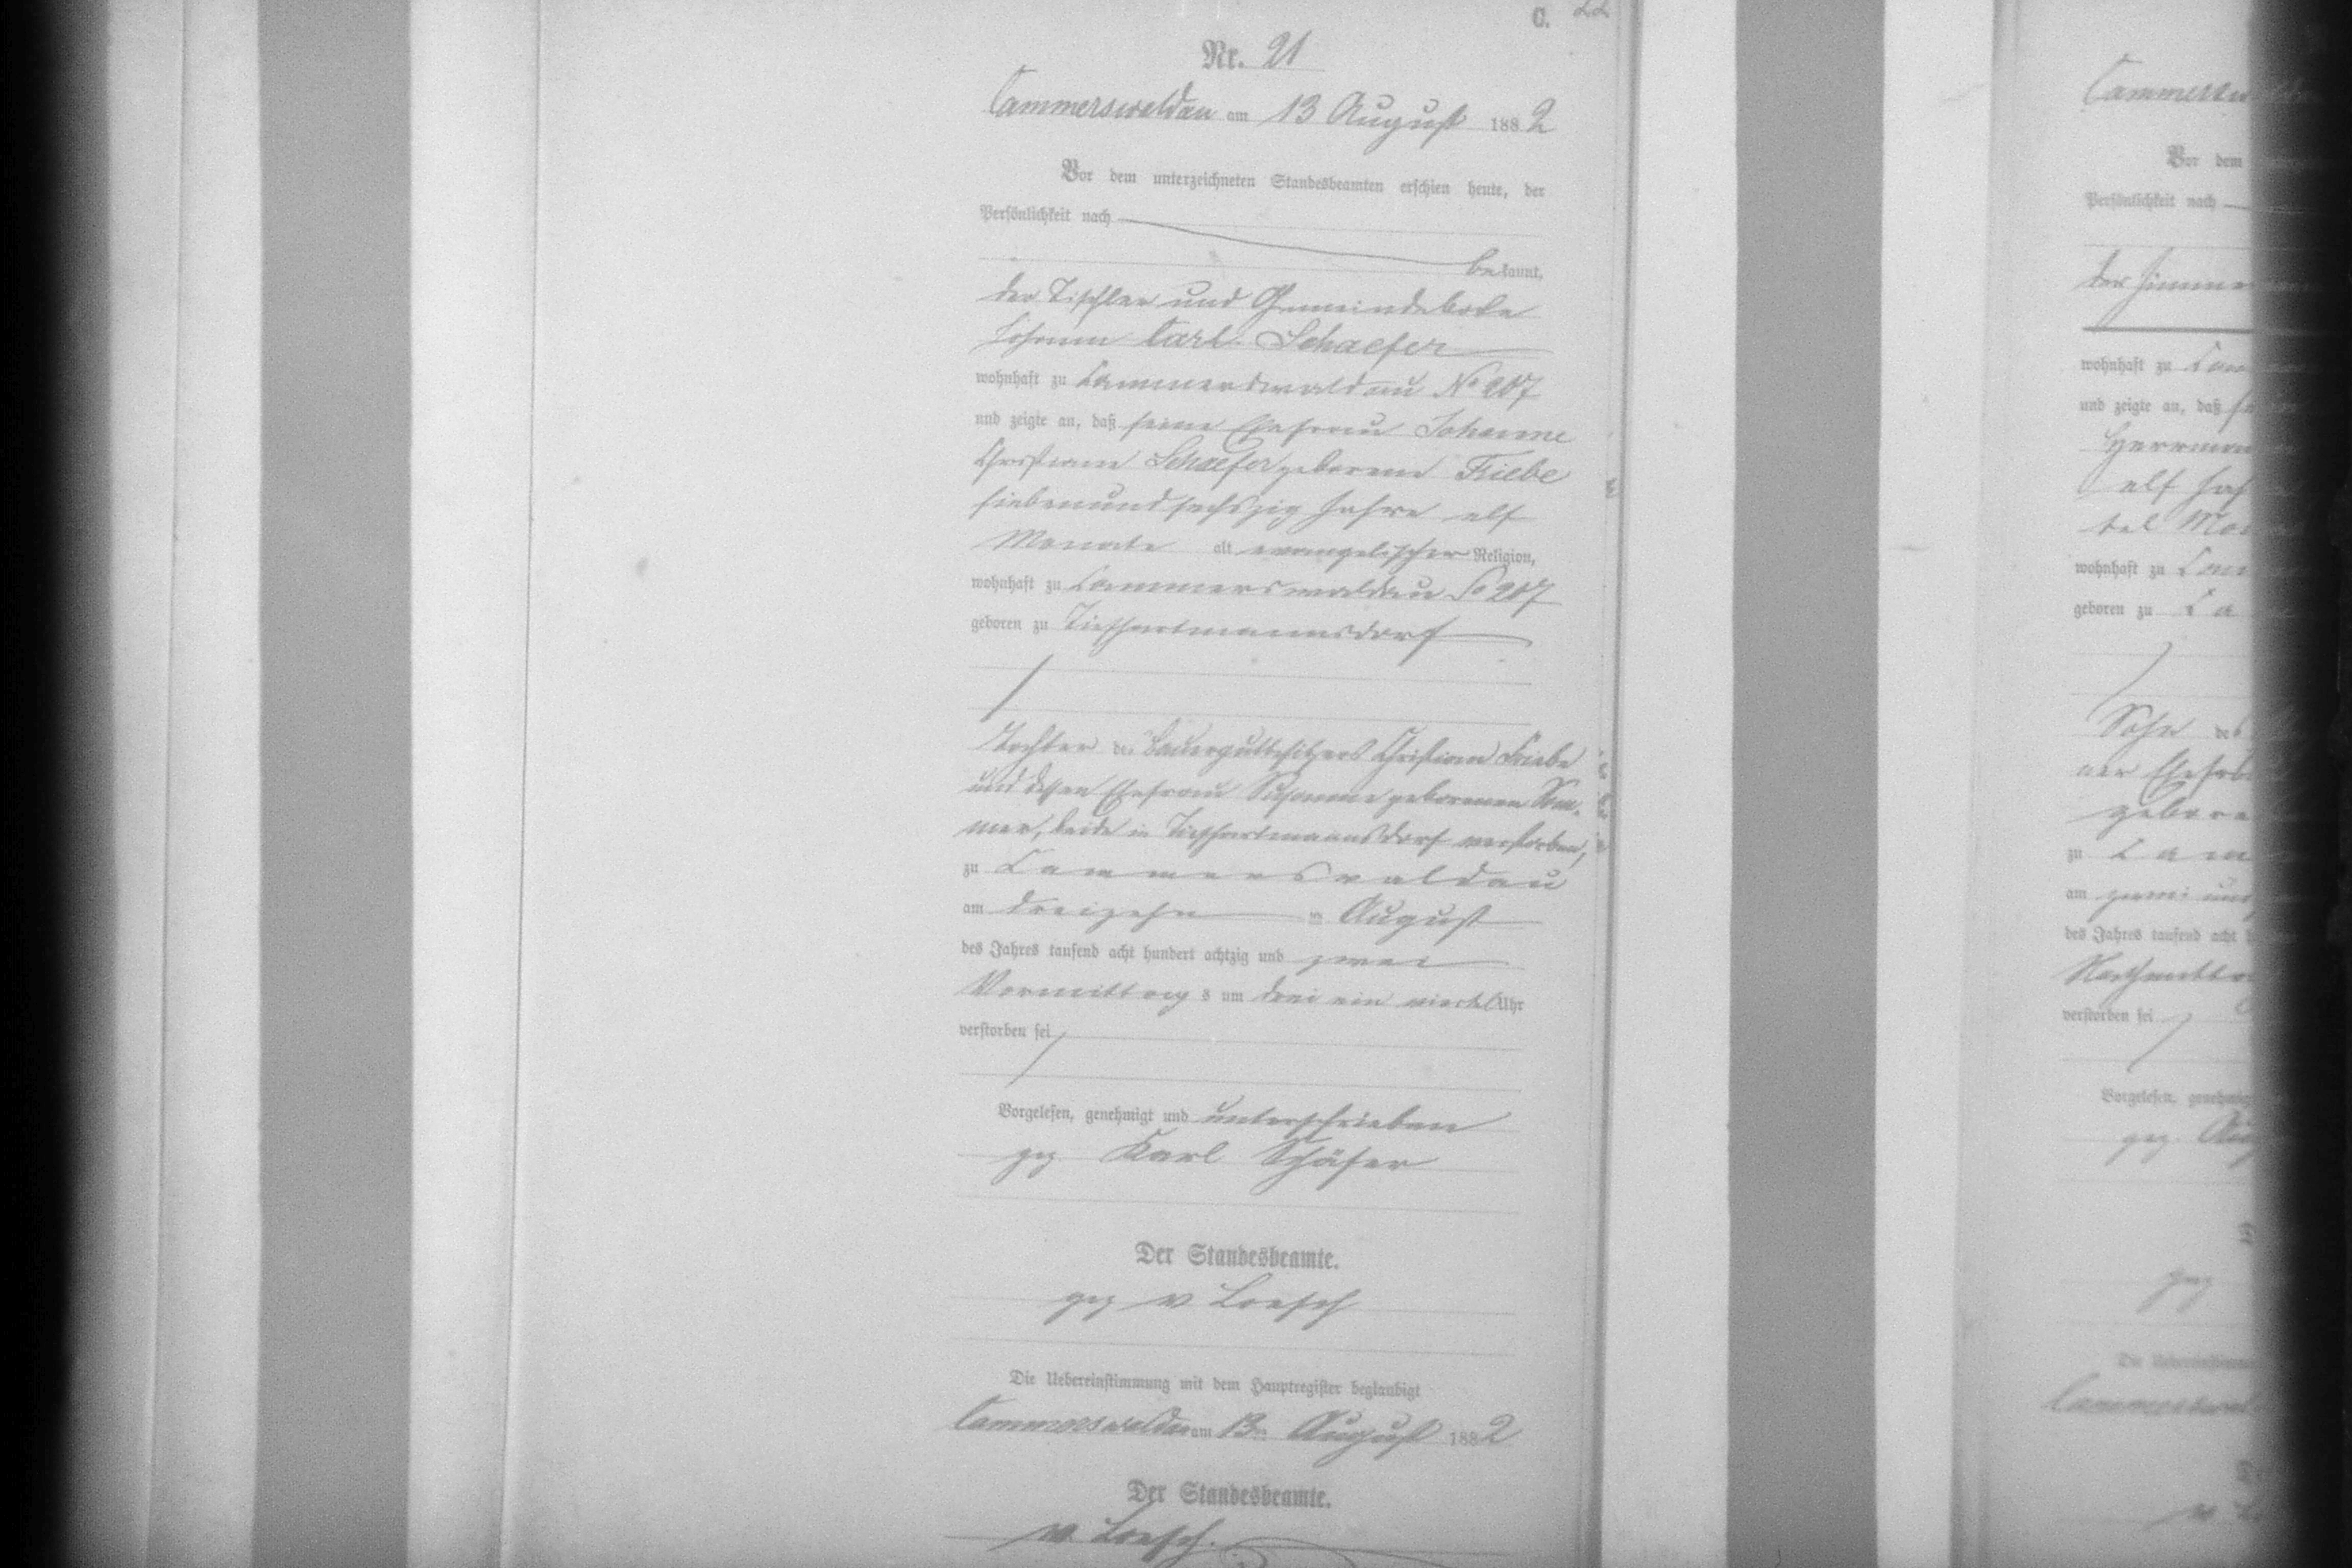 C. 22
Nr. 21
Cammerswaldau am 13 August 1882
Vor dem unterzeichneten Standesbeamten erschien heute, der
Persönlichkeit nach
bekannt,
der Tischler und Gemeindebote
Johann Carl Schaefer
wohnhaft zu Cammerswaldau No 207
und zeigte an, daß seine Ehefrau Johanne
Christiane Schaefer geborene Friebe
siebenundsechszig Jahre elf
Monate alt evangelischer Religion,
wohnhaft zu Cammerswaldau No 207
geboren zu Tiefhartmannsdorf
Tochter des Bauergutbesitzers Christian Friebe
und dessen Ehefrau Susanne geborenen Som-
mer, beide in Tiefhartmannsdorf verstorben,
zu Cammerswaldau
am dreizehn ten August
des Jahres tausend acht hundert achtzig und zwei
Vormittags um drei ein viertel Uhr
verstorben sei
Vorgelesen, genehmigt und unterschrieben
gez Karl Schäfer
Der Standesbeamte.
gez v Loesch
Die Uebereinstimmung mit dem Hauptregister beglaubigt
Cammerswaldau am 13ten August 1882
Der Standesbeamte.
v. Loesch.
Vor dem
Persönlichkeit nach
wohnhaft zu
und zeigte an, daß
elf
wohnhaft zu
geboren zu
Sohn des
zu
am zwei und
des Jahres tausend acht
verstorben sei
Vorgelesen, genehmigt
gez.
gez